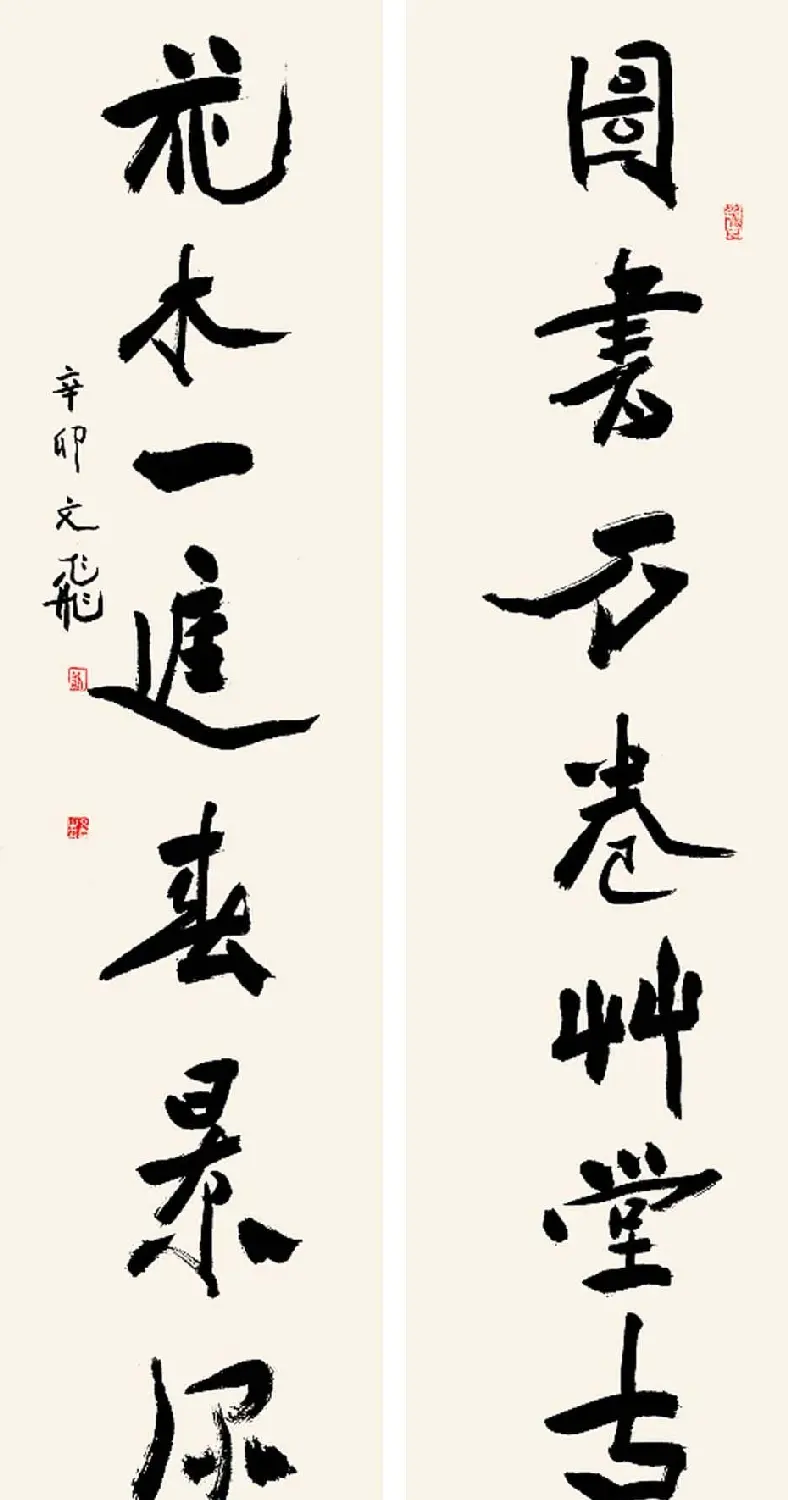 圖書万卷艸堂古
花木一進春景深
辛卯文飛